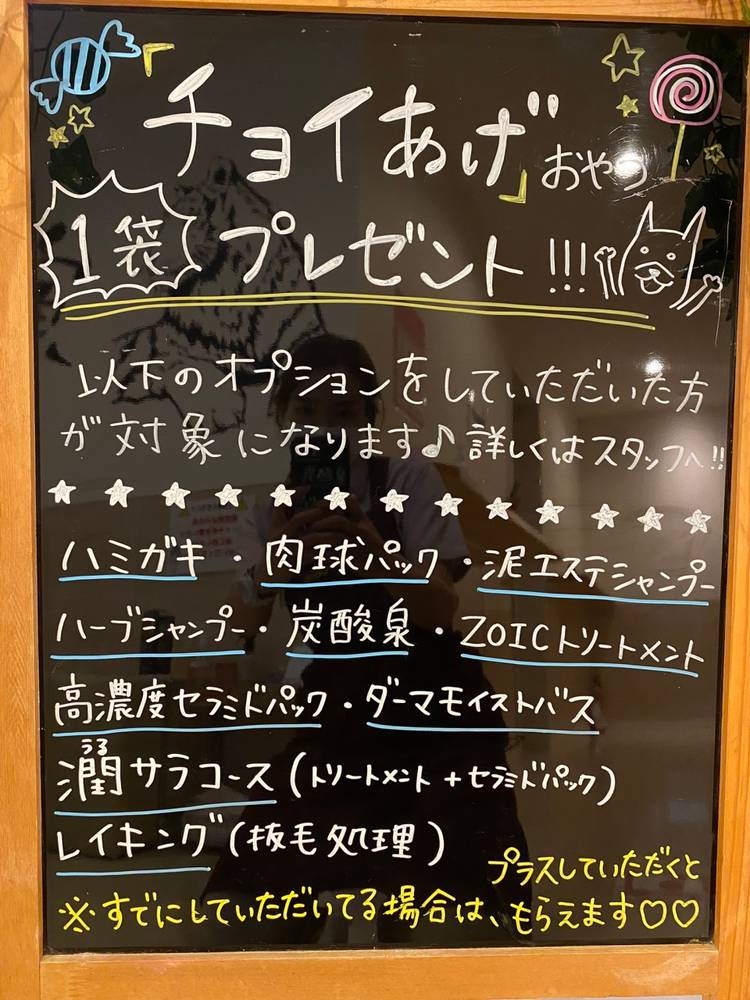 「チョイあげ」おやつ
1袋 プレゼント!!!
以下のオプションをしていただいた方
が対象になります♪詳しくはスタッフへ!!
☆ ☆ ☆ ☆ ☆ ☆ ☆ ☆ ☆ ☆ ☆ ☆ ☆
ハミガキ・肉球パック・泥エステシャンプー
ハーブシャンプー・炭酸泉・ZOICトリートメント
高濃度セラミドパック・ダーマモイストバス
うる
潤サラコース(トリートメント+セラミドパック)
レイキング(抜毛処理)
プラスしていただくと
※すでにしていただいてる場合は、もらえます♡♡